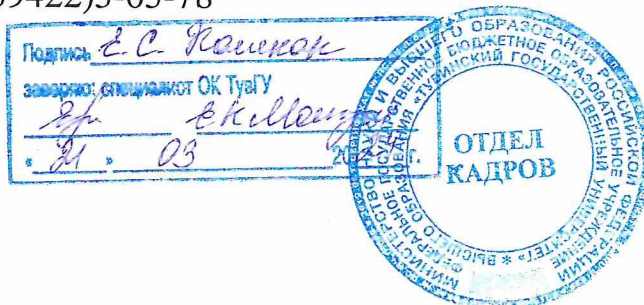 39422)5-05-78
Подпись Е. С.
заверяю: специалист ОК ТувГУ
« 21 » 03 20 г.
МИНИСТЕРСТВО НАУКИ И ВЫСШЕГО ОБРАЗОВАНИЯ РОССИЙСКОЙ ФЕДЕРАЦИИ
ФЕДЕРАЛЬНОЕ ГОСУДАРСТВЕННОЕ БЮДЖЕТНОЕ ОБРАЗОВАТЕЛЬНОЕ УЧРЕЖДЕНИЕ
ВЫСШЕГО ОБРАЗОВАНИЯ «ТУВИНСКИЙ ГОСУДАРСТВЕННЫЙ УНИВЕРСИТЕТ»
ОТДЕЛ
КАДРОВ